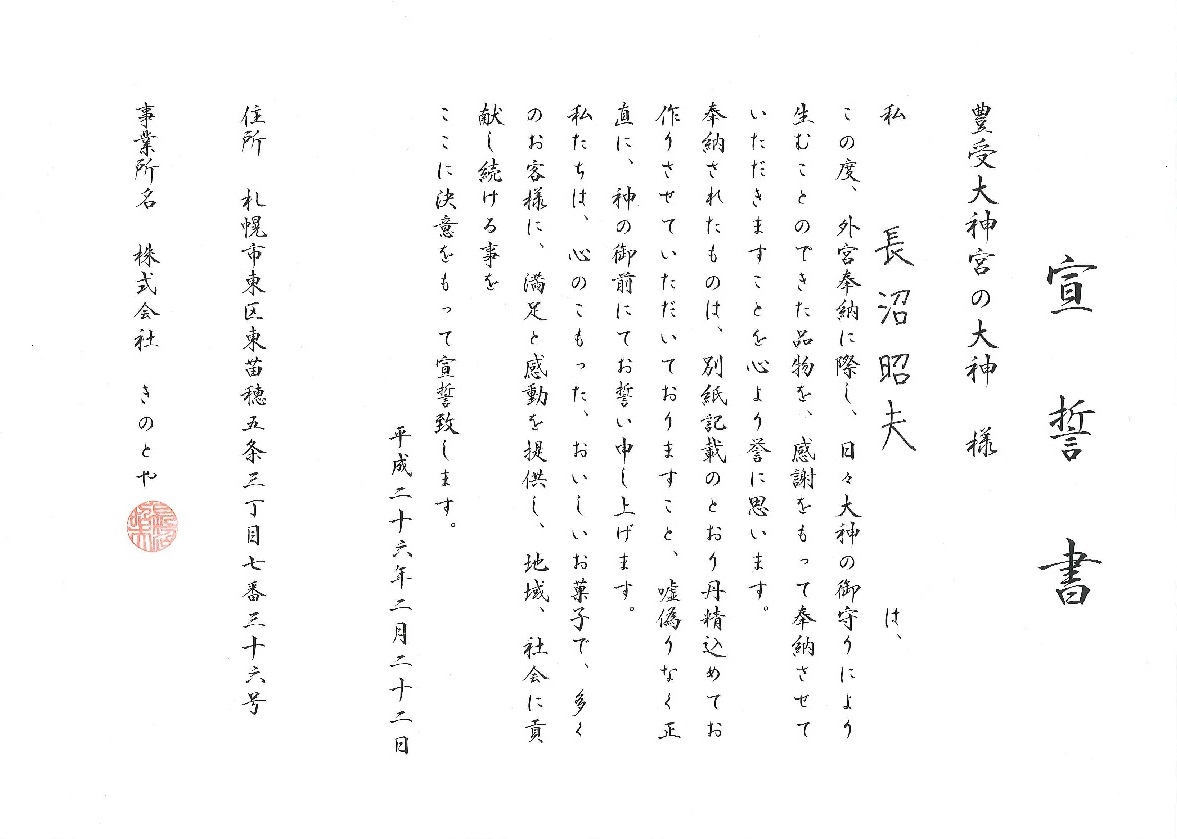 宣誓書
豊受大神宮の大神　様
私　長沼昭夫　は、
この度、外宮奉納に際し、日々大神の御守りにより
生むことのできた品物を、感謝をもって奉納させて
いただきますことを心より誉に思います。
奉納されたものは、別紙記載のとおり丹精込めてお
作りさせていただいておりますこと、嘘偽りなく正
直に、神の御前にてお誓い申し上げます。
私たちは、心のこもった、おいしいお菓子で、多く
のお客様に、満足と感動を提供し、地域、社会に貢
献し続ける事を
ここに決意をもって宣誓致します。
平成二十六年二月二十二日
住所　札幌市東区東苗穂五条三丁目七番三十六号
事業所名　株式会社　きのとや